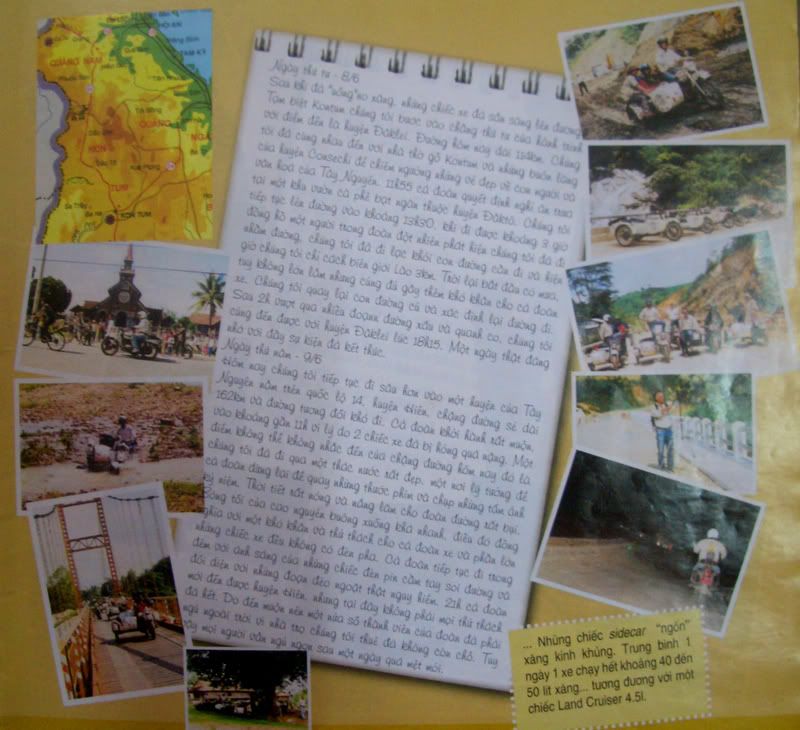 QUẢNG NAM
KON
TUM
KON TUM
QUẢNG
Ngày thứ tư - 8/6
Sau khi đã "uống" no xăng, những chiếc xe đã sẵn sàng lên đường
Tạm biệt Kontum chúng tôi bước vào chặng thứ tư của hành trình
với điểm đến là huyện Đăklei. Đường hôm nay dài 114km. Chúng
tôi đã cùng nhau đến với nhà thờ gỗ Kontum và những buôn làng
của huyện Consechi để chiêm ngưỡng những vẻ đẹp về con người và
văn hoá của Tây Nguyên. 11h55 cả đoàn quyết định nghỉ ăn trưa
tại một khu vườn cà phê bạt ngàn thuộc huyện Đăktô. Chúng tôi
tiếp tục lên đường vào khoảng 13h30, khi đi được khoảng 3 giờ
đồng hồ một người trong đoàn đột nhiên phát hiện chúng tôi đã đi
nhầm đường, chúng tôi đã đi lạc khỏi con đường cần đi và hiện
giờ chúng tôi chỉ cách biên giới Lào 3km. Trời lại bắt đầu có mưa,
tuy không lớn lắm nhưng cũng đủ gây thêm khó khăn cho cả đoàn
xe. Chúng tôi quay lại con đường cũ và xác định lại đường đi.
Sau 2h vượt qua nhiều đoạn đường xấu và quanh co, chúng tôi
cũng đến được với huyện Đăklei lúc 18h15. Một ngày thật đáng
nhớ với đầy sự kiện đã kết thúc.
Ngày thứ năm - 9/6
Hôm nay chúng tôi tiếp tục đi sâu hơn vào một huyện của Tây
Nguyên nằm trên quốc lộ 14, huyện Hiên, chặng đường sẽ dài
162km và đường tương đối khó đi. Cả đoàn khởi hành rất muộn,
vào khoảng gần 11h vì lý do 2 chiếc xe đã bị hỏng quá nặng. Một
điểm không thể không nhắc đến của chặng đường hôm nay đó là
chúng tôi đã đi qua một thác nước rất đẹp, một nơi lý tưởng để
cả đoàn dừng lại để quay những thước phim và chụp những tấm ảnh
kỷ niệm. Thời tiết rất nóng và nắng làm cho đoàn đường rất bụi.
Bóng tối của cao nguyên buông xuống khá nhanh, điều đó đồng
nghĩa với một khó khăn và thử thách cho cả đoàn xe vì phần lớn
những chiếc xe đều không có đèn pha. Cả đoàn tiếp tục đi trong
đêm với ánh sáng của những chiếc đèn pin cầm tay soi đường và
đối diện với những đoạn đèo ngoặt thật nguy hiểm. 21h cả đoàn
mới đến được huyện Hiên, nhưng tại đây không phải mọi thử thách
đã hết. Do đến muộn nên một nửa số thành viên của đoàn đã phải
ngủ ngoài trời vì nhà trọ chúng tôi thuê đã không còn chỗ. Tuy
vậy mọi người vẫn ngủ ngon sau một ngày quá mệt mỏi.
... Những chiếc sidecar "ngốn"
xăng kinh khủng. Trung bình 1
ngày 1 xe chạy hết khoảng 40 đến
50 lít xăng... tương đương với một
chiếc Land Cruiser 4.5l.